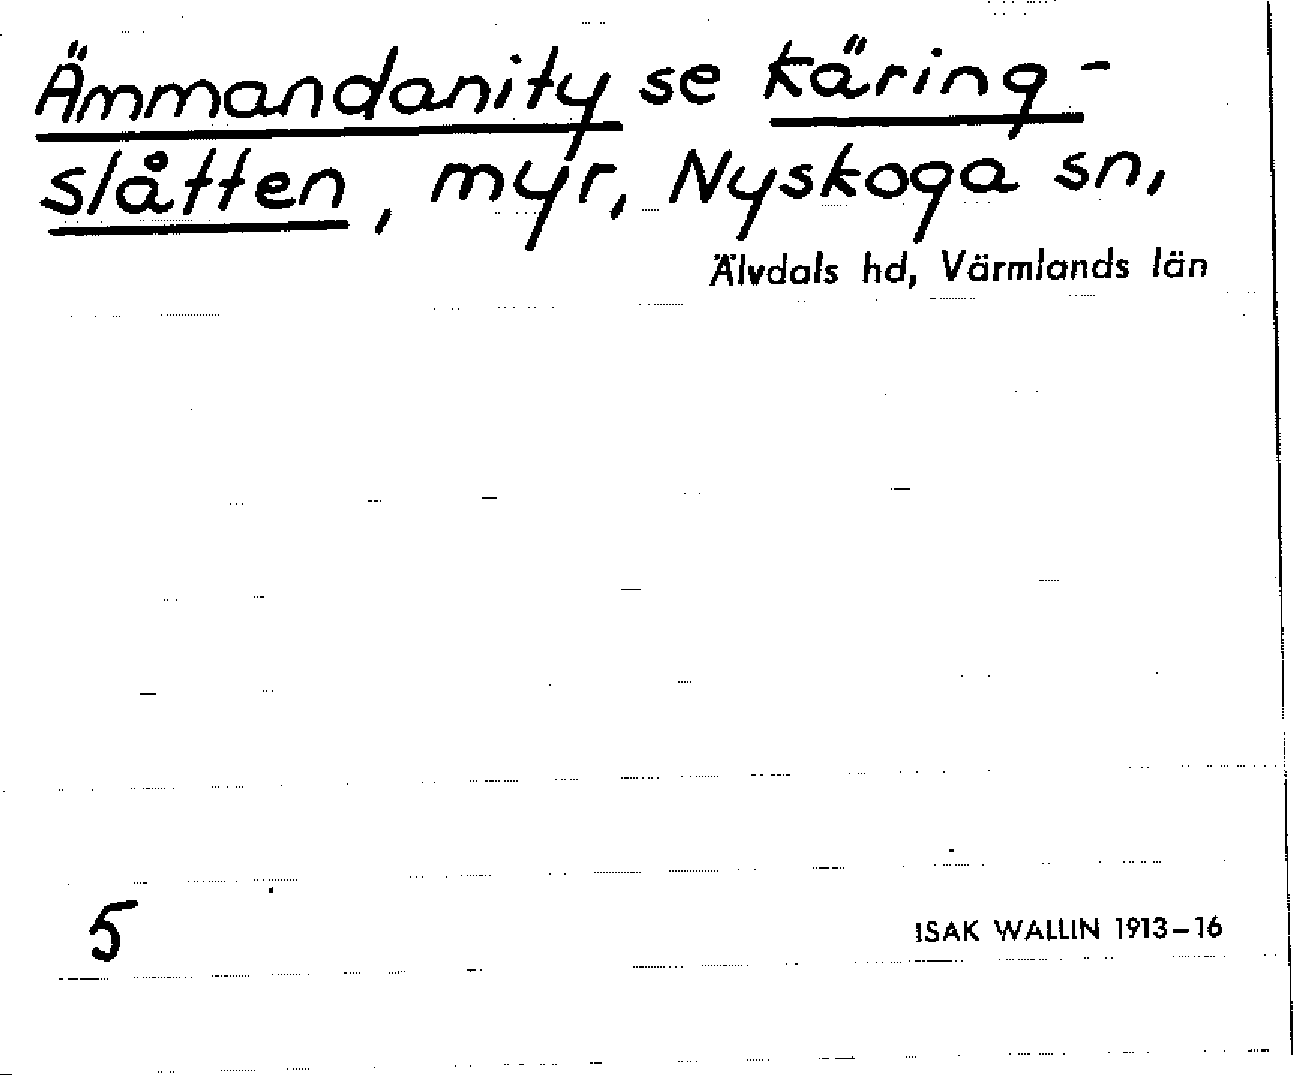 Ämmandanity se Käring-
slåtten, myr, Nyskoga sn,
Älvdals hd, Värmlands län
5
ISAK WALLIN 1913–16